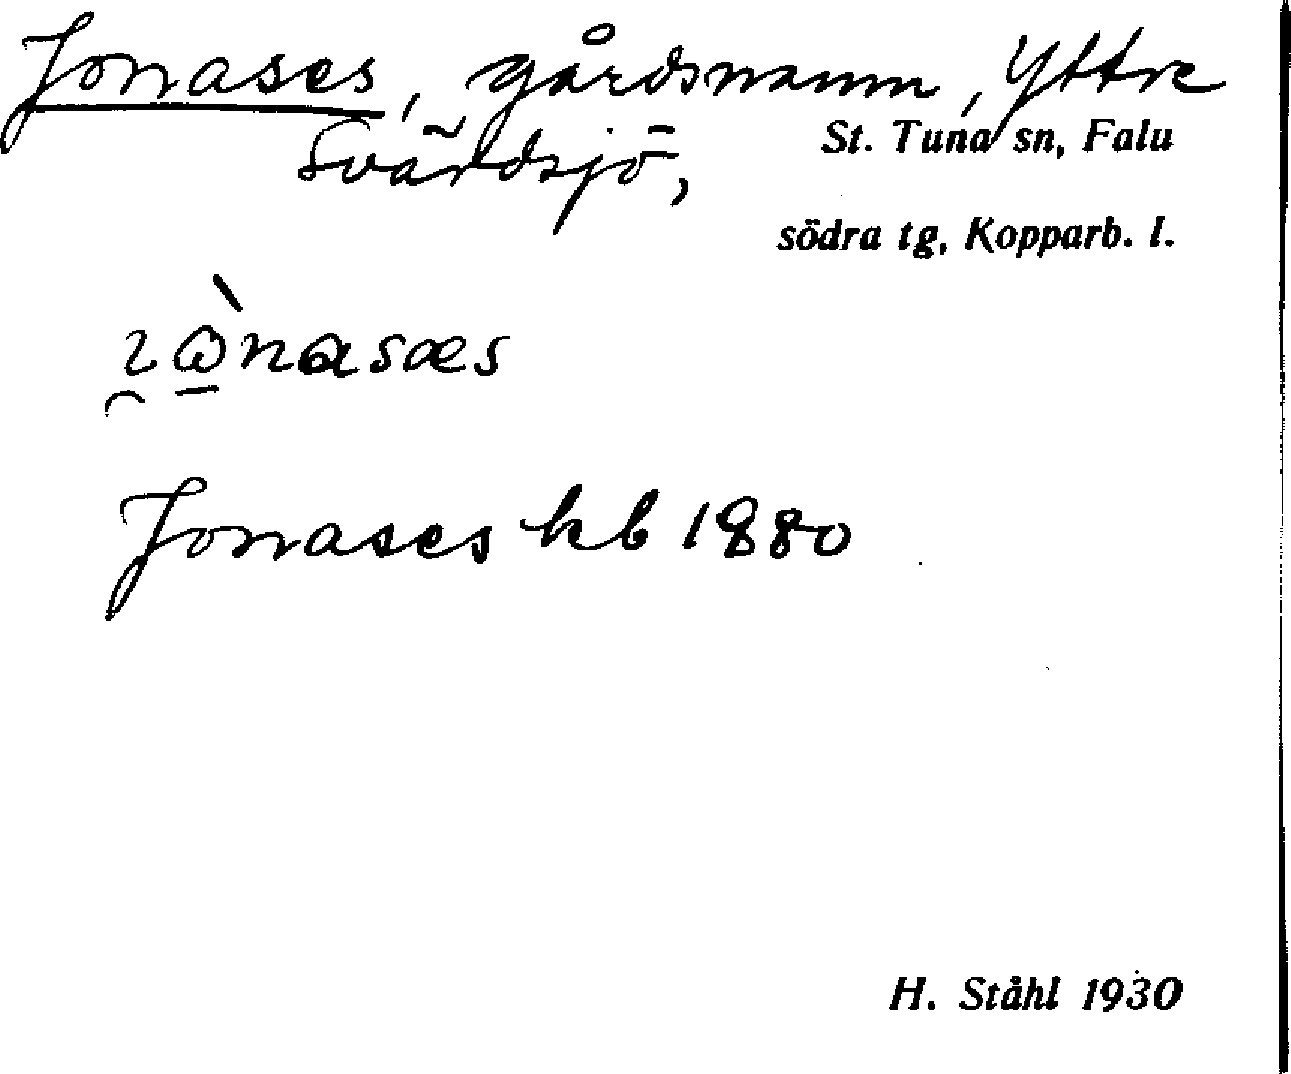 Jonases, gårdsnamn, Yttre
Svärdsjö, St. Tuna sn, Falu
södra tg, Kopparb. l.
Jonases kb 1880
H. Ståhl 1930